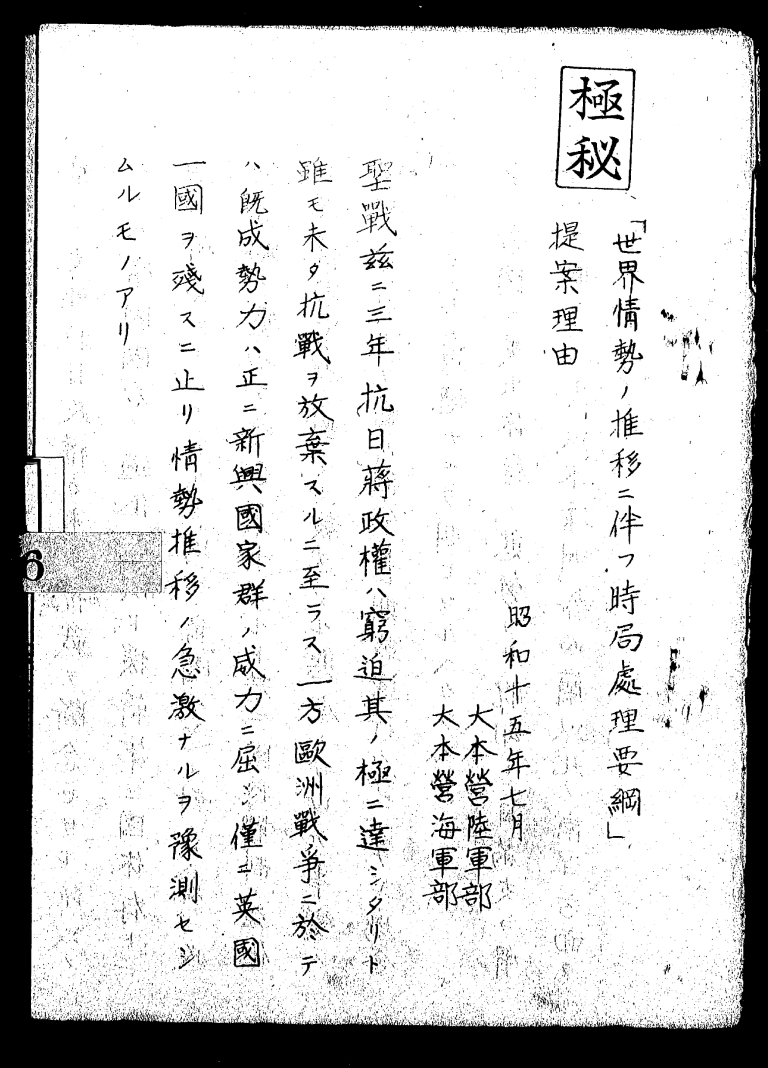 極秘
「世界情勢ノ推移ニ伴フ時局處理要綱」
提案理由
昭和十五年七月
大本營陸軍部
大本營海軍部
聖戰茲ニ三年抗日蔣政權ハ窮迫其ノ極ニ達シタリト
雖モ未タ抗戰ヲ放棄スルニ至ラス一方歐洲戰爭ニ於テ
ハ既成勢力ハ正ニ新興國家群ノ威力ニ屈シ僅ニ英國
一國ヲ殘スニ止リ情勢推移ノ急激ナルヲ豫測セシ
ムルモノアリ
6